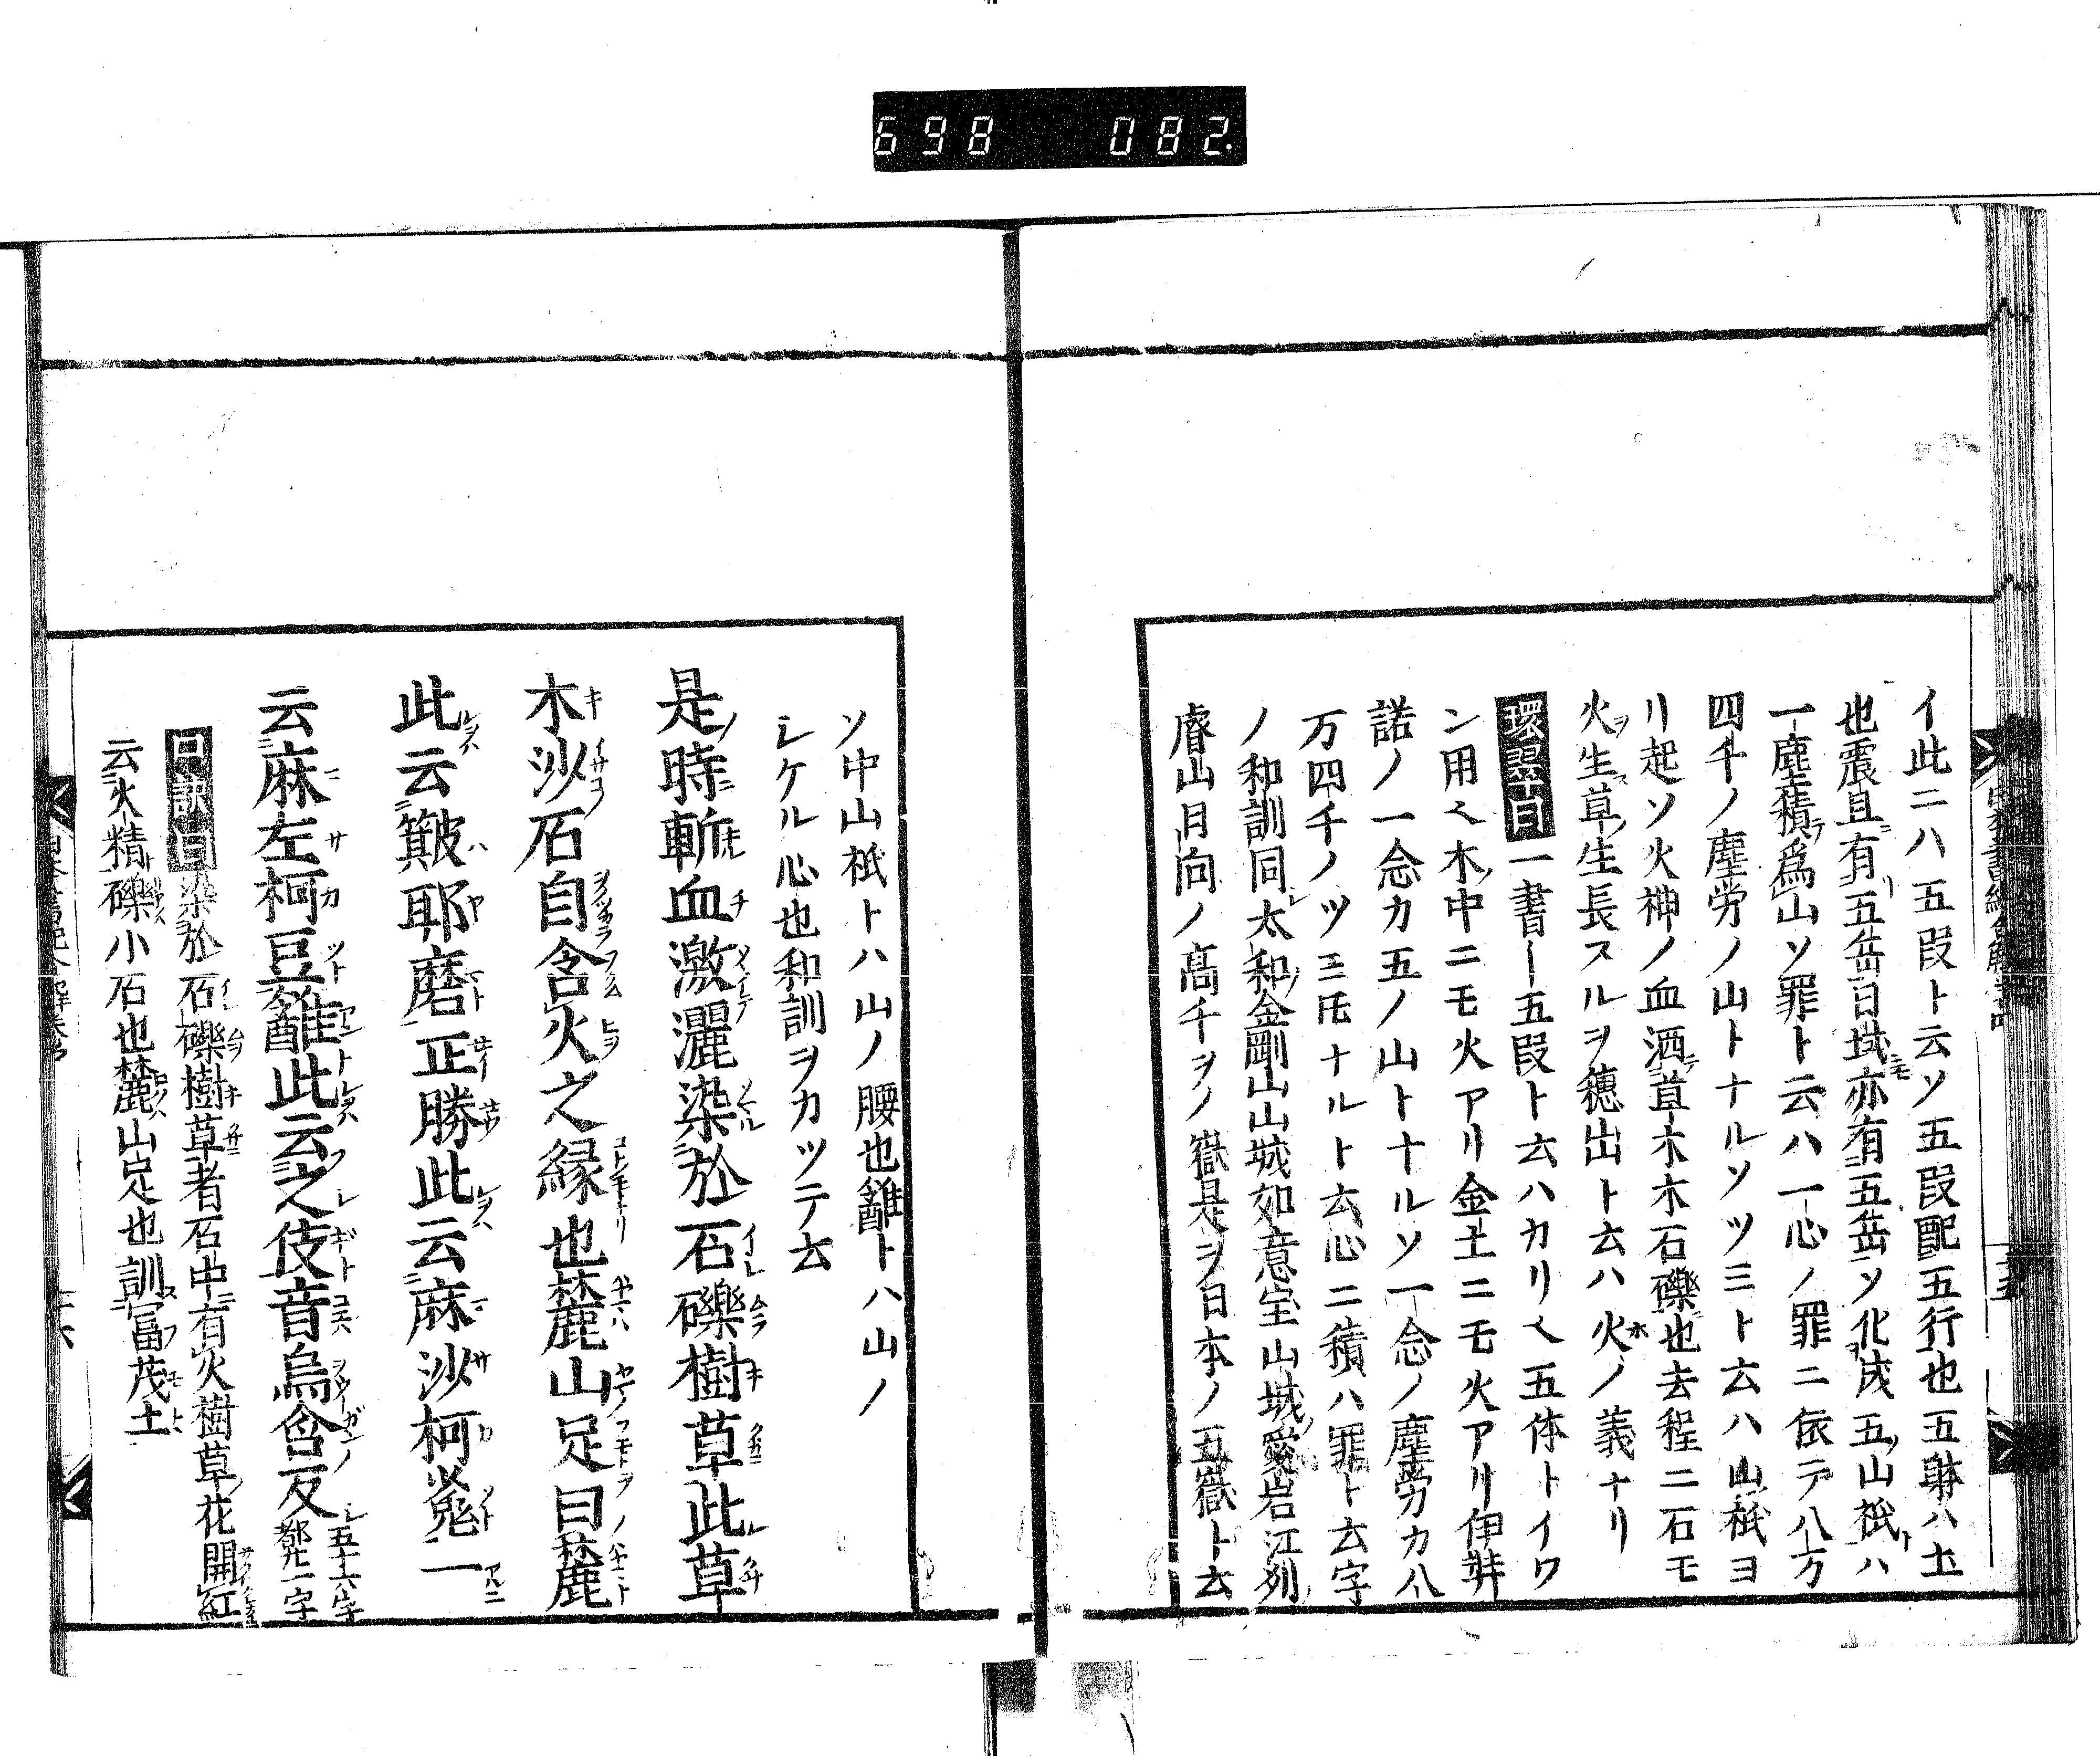 698 082.
イ此ニハ五段ト云ソ五段配五行也五躰ハ土
也震旦有五岳日域亦有五岳ソ化成五山祇ハ
一塵積為山ソ罪ト云ハ一心ノ罪ニ依テ八万
四千ノ塵労ノ山トナルソツミト云ハ山祇ヨ
リ起ソ火神ノ血洒草木木石礫也去程ニ石モ
火生草生長スルヲ穂出ト云ハ火ノ義ナリ
環翠曰一書ー五段ト云ハカリ〱五体トイワ
ン用〱木中ニモ火アリ金土ニモ火アリ伊弉
諾ノ一念カ五ノ山トナルソ一念ノ塵労カ八
万四千ノツミ㒵ナルト云心ニ積ハ罪ト云字
ノ和訓同太和金剛山山城如意宝山城愛岩江列
睿山日向ノ髙千ヲノ嶽是ヲ日本ノ五嶽ト云
ソ中山祇トハ山ノ腰也䧹トハ山ノ
シケル心也和訓ヲカツテ云
是時斬血激灑染於石礫樹草此草
木沙石自含火之縁也麓山足曰麓
此云簸耶磨正勝此云麻沙柯
云麻左柯豆䧹此云之伎音烏含反
口訣曰染於石礫樹草者石中有火樹草花開紅
云火精礫小石也麓山足也訓冨茂土